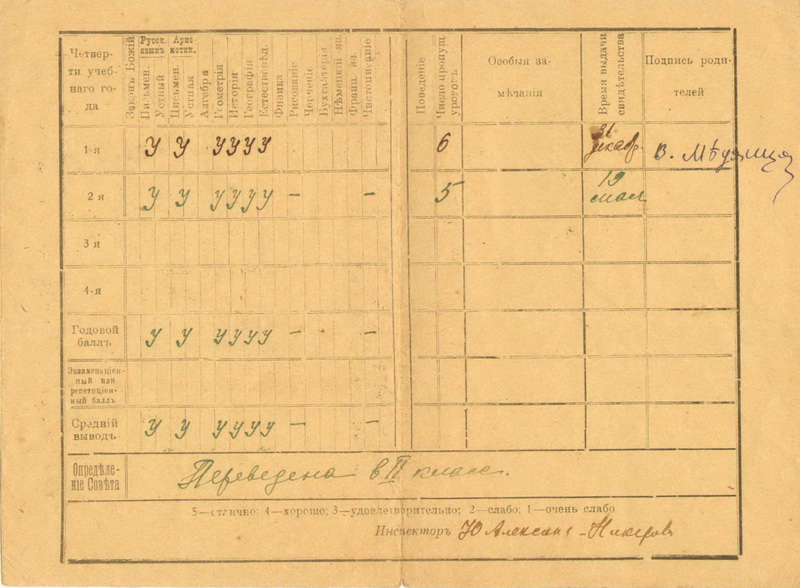 Четвер-
ти учеб-
наго го-
да
Законъ Божій
Русск.
языкъ
Письмен.
Устный
Арио
метик.
Письмен.
Устная
Алгебра
Геометрія
Исторія
Географія
Естествовѣд.
Физика
Рисованіе
Черченіе
Бухгалтерія
Нѣмецкій яз.
Франц. яз.
Чистописаніе
Поведеніе
Число пропущ.
уроковъ
Особыя за-
мѣчанія
Время выдачи
свидѣтельства
Подпись роди-
телей
1-я У У У У У У 6 31 декабр.
2 я У У У У У У – – 5 19 мая
3 я
4-я
Годовой
баллъ У У У У У У – –
Экзаменаціон-
ный или
репетиціон-
ный баллъ
Средній
выводъ У У У У У У – –
Опредѣле-
ніе Совѣта Переведена в II класс.
5—отлично; 4—хорошо; 3—удовлетворительно; 2—слабо; 1—очень слабо
Инспекторъ